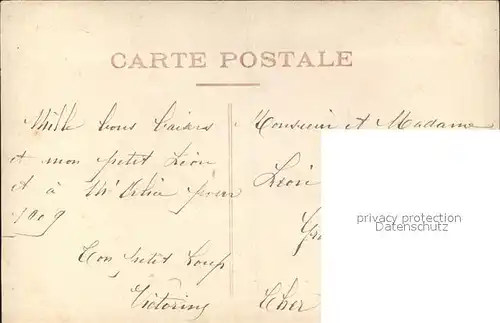 CARTE POSTALE
Mille bons baisers
et mon petit Léon
et à Mr pour
1909
Ton petit Loup
Victorine
Monsieur et Madame
Léon
Cher
privacy protection
Datenschutz